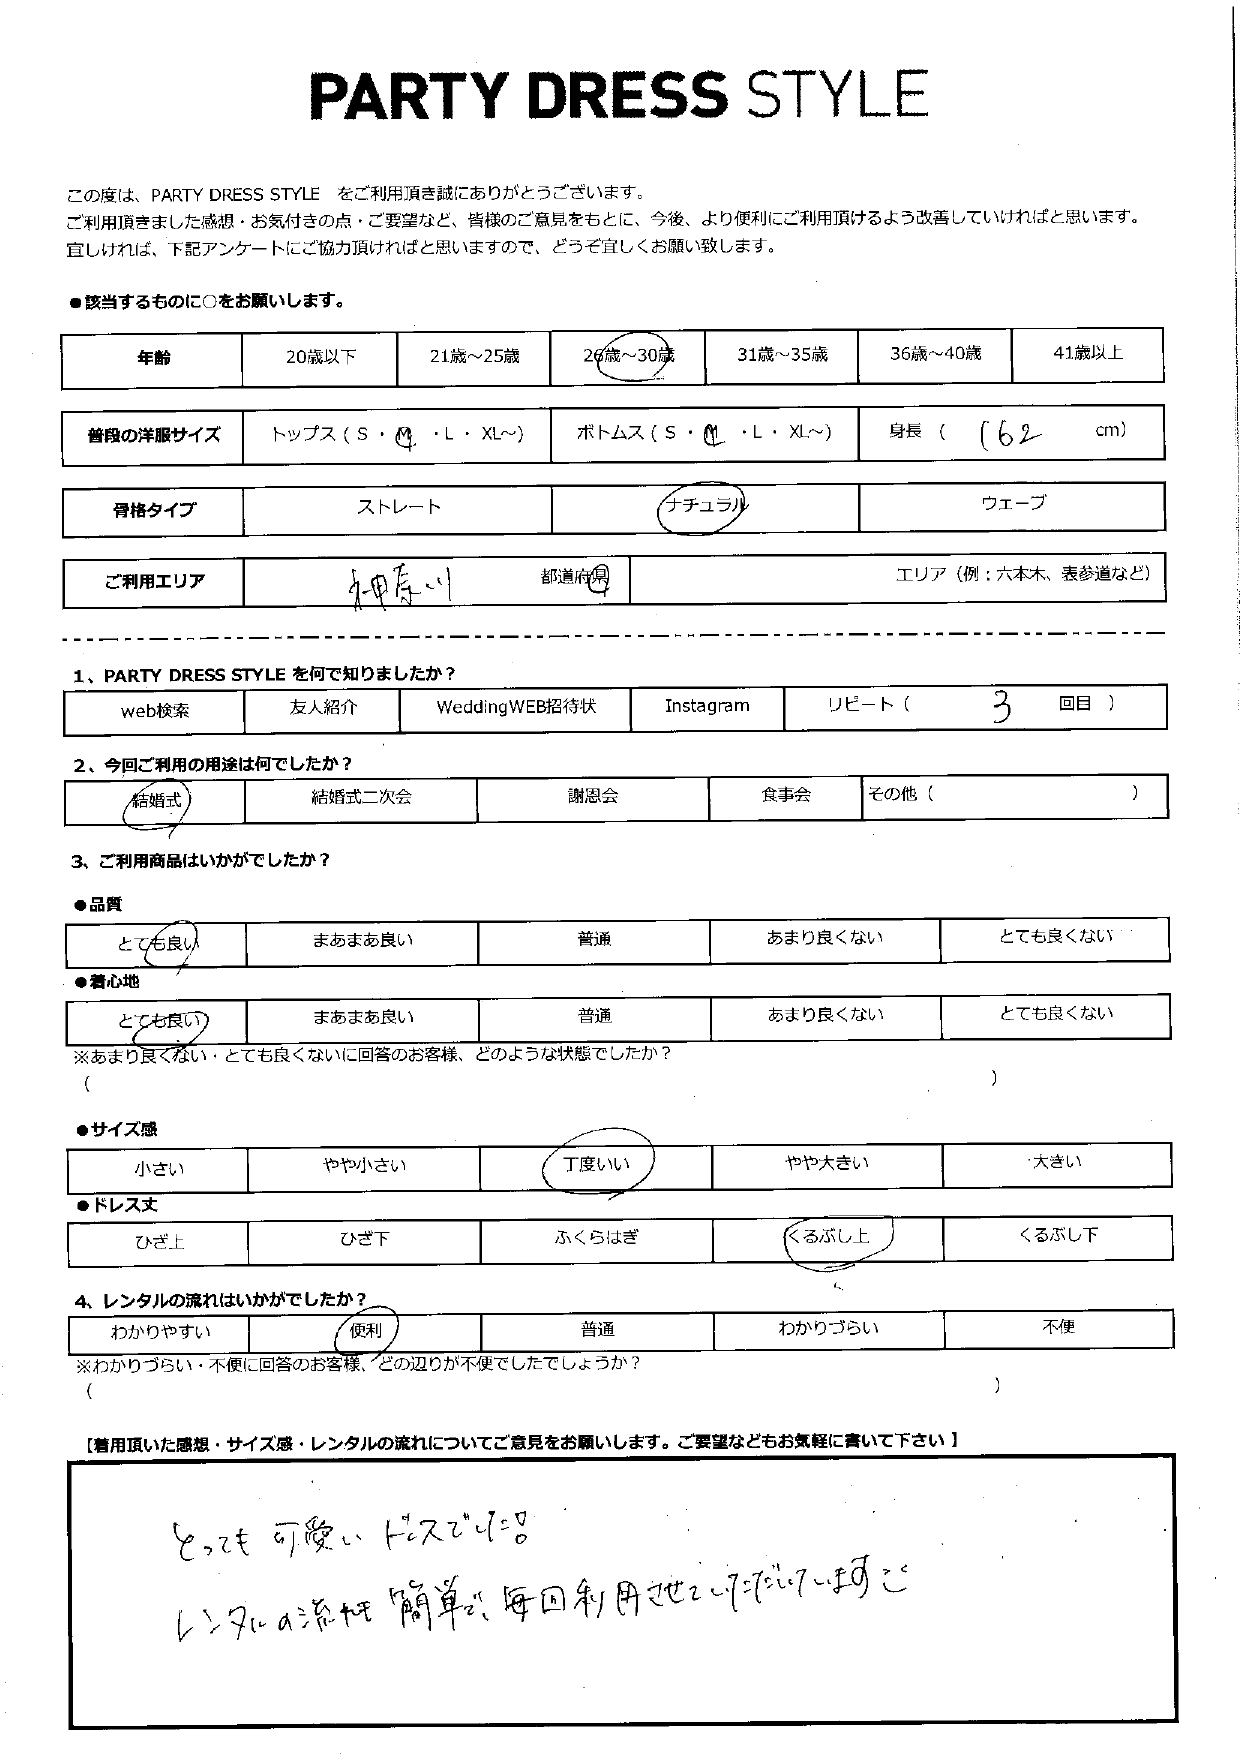 PARTY DRESS STYLE
この度は、PARTY DRESS STYLE　をご利用頂き誠にありがとうございます。
ご利用頂きました感想・お気付きの点・ご要望など、皆様のご意見をもとに、今後、より便利にご利用頂けるよう改善していければと思います。
宜しければ、下記アンケートにご協力頂ければと思いますので、どうぞ宜しくお願い致します。
●該当するものに○をお願いします。
年齢 20歳以下 21歳～25歳 26歳～30歳 31歳～35歳 36歳～40歳 41歳以上
普段の洋服サイズ トップス（ S ・ M ・L ・ XL～） ボトムス（ S ・ M ・L ・ XL～） 身長 （ 162 cm）
骨格タイプ ストレート ナチュラル ウェーブ
ご利用エリア 神奈川 都道府県 エリア（例：六本木、表参道など）
1、PARTY DRESS STYLE を何で知りましたか？
web検索 友人紹介 WeddingWEB招待状 Instagram リピート（ 3 回目 ）
2、今回ご利用の用途は何でしたか？
結婚式 結婚式二次会 謝恩会 食事会 その他（ ）
3、ご利用商品はいかがでしたか？
●品質
とても良い まあまあ良い 普通 あまり良くない とても良くない
●着心地
とても良い まあまあ良い 普通 あまり良くない とても良くない
※あまり良くない・とても良くないに回答のお客様、どのような状態でしたか？
（ ）
●サイズ感
小さい やや小さい 丁度いい やや大きい 大きい
●ドレス丈
ひざ上 ひざ下 ふくらはぎ くるぶし上 くるぶし下
4、レンタルの流れはいかがでしたか？
わかりやすい 便利 普通 わかりづらい 不便
※わかりづらい・不便に回答のお客様、どの辺りが不便でしたでしょうか？
（ ）
【着用頂いた感想・サイズ感・レンタルの流れについてご意見をお願いします。ご要望などもお気軽に書いて下さい】
とっても可愛いドレスでした!
レンタルの流れも簡単で、毎回利用させていただいています